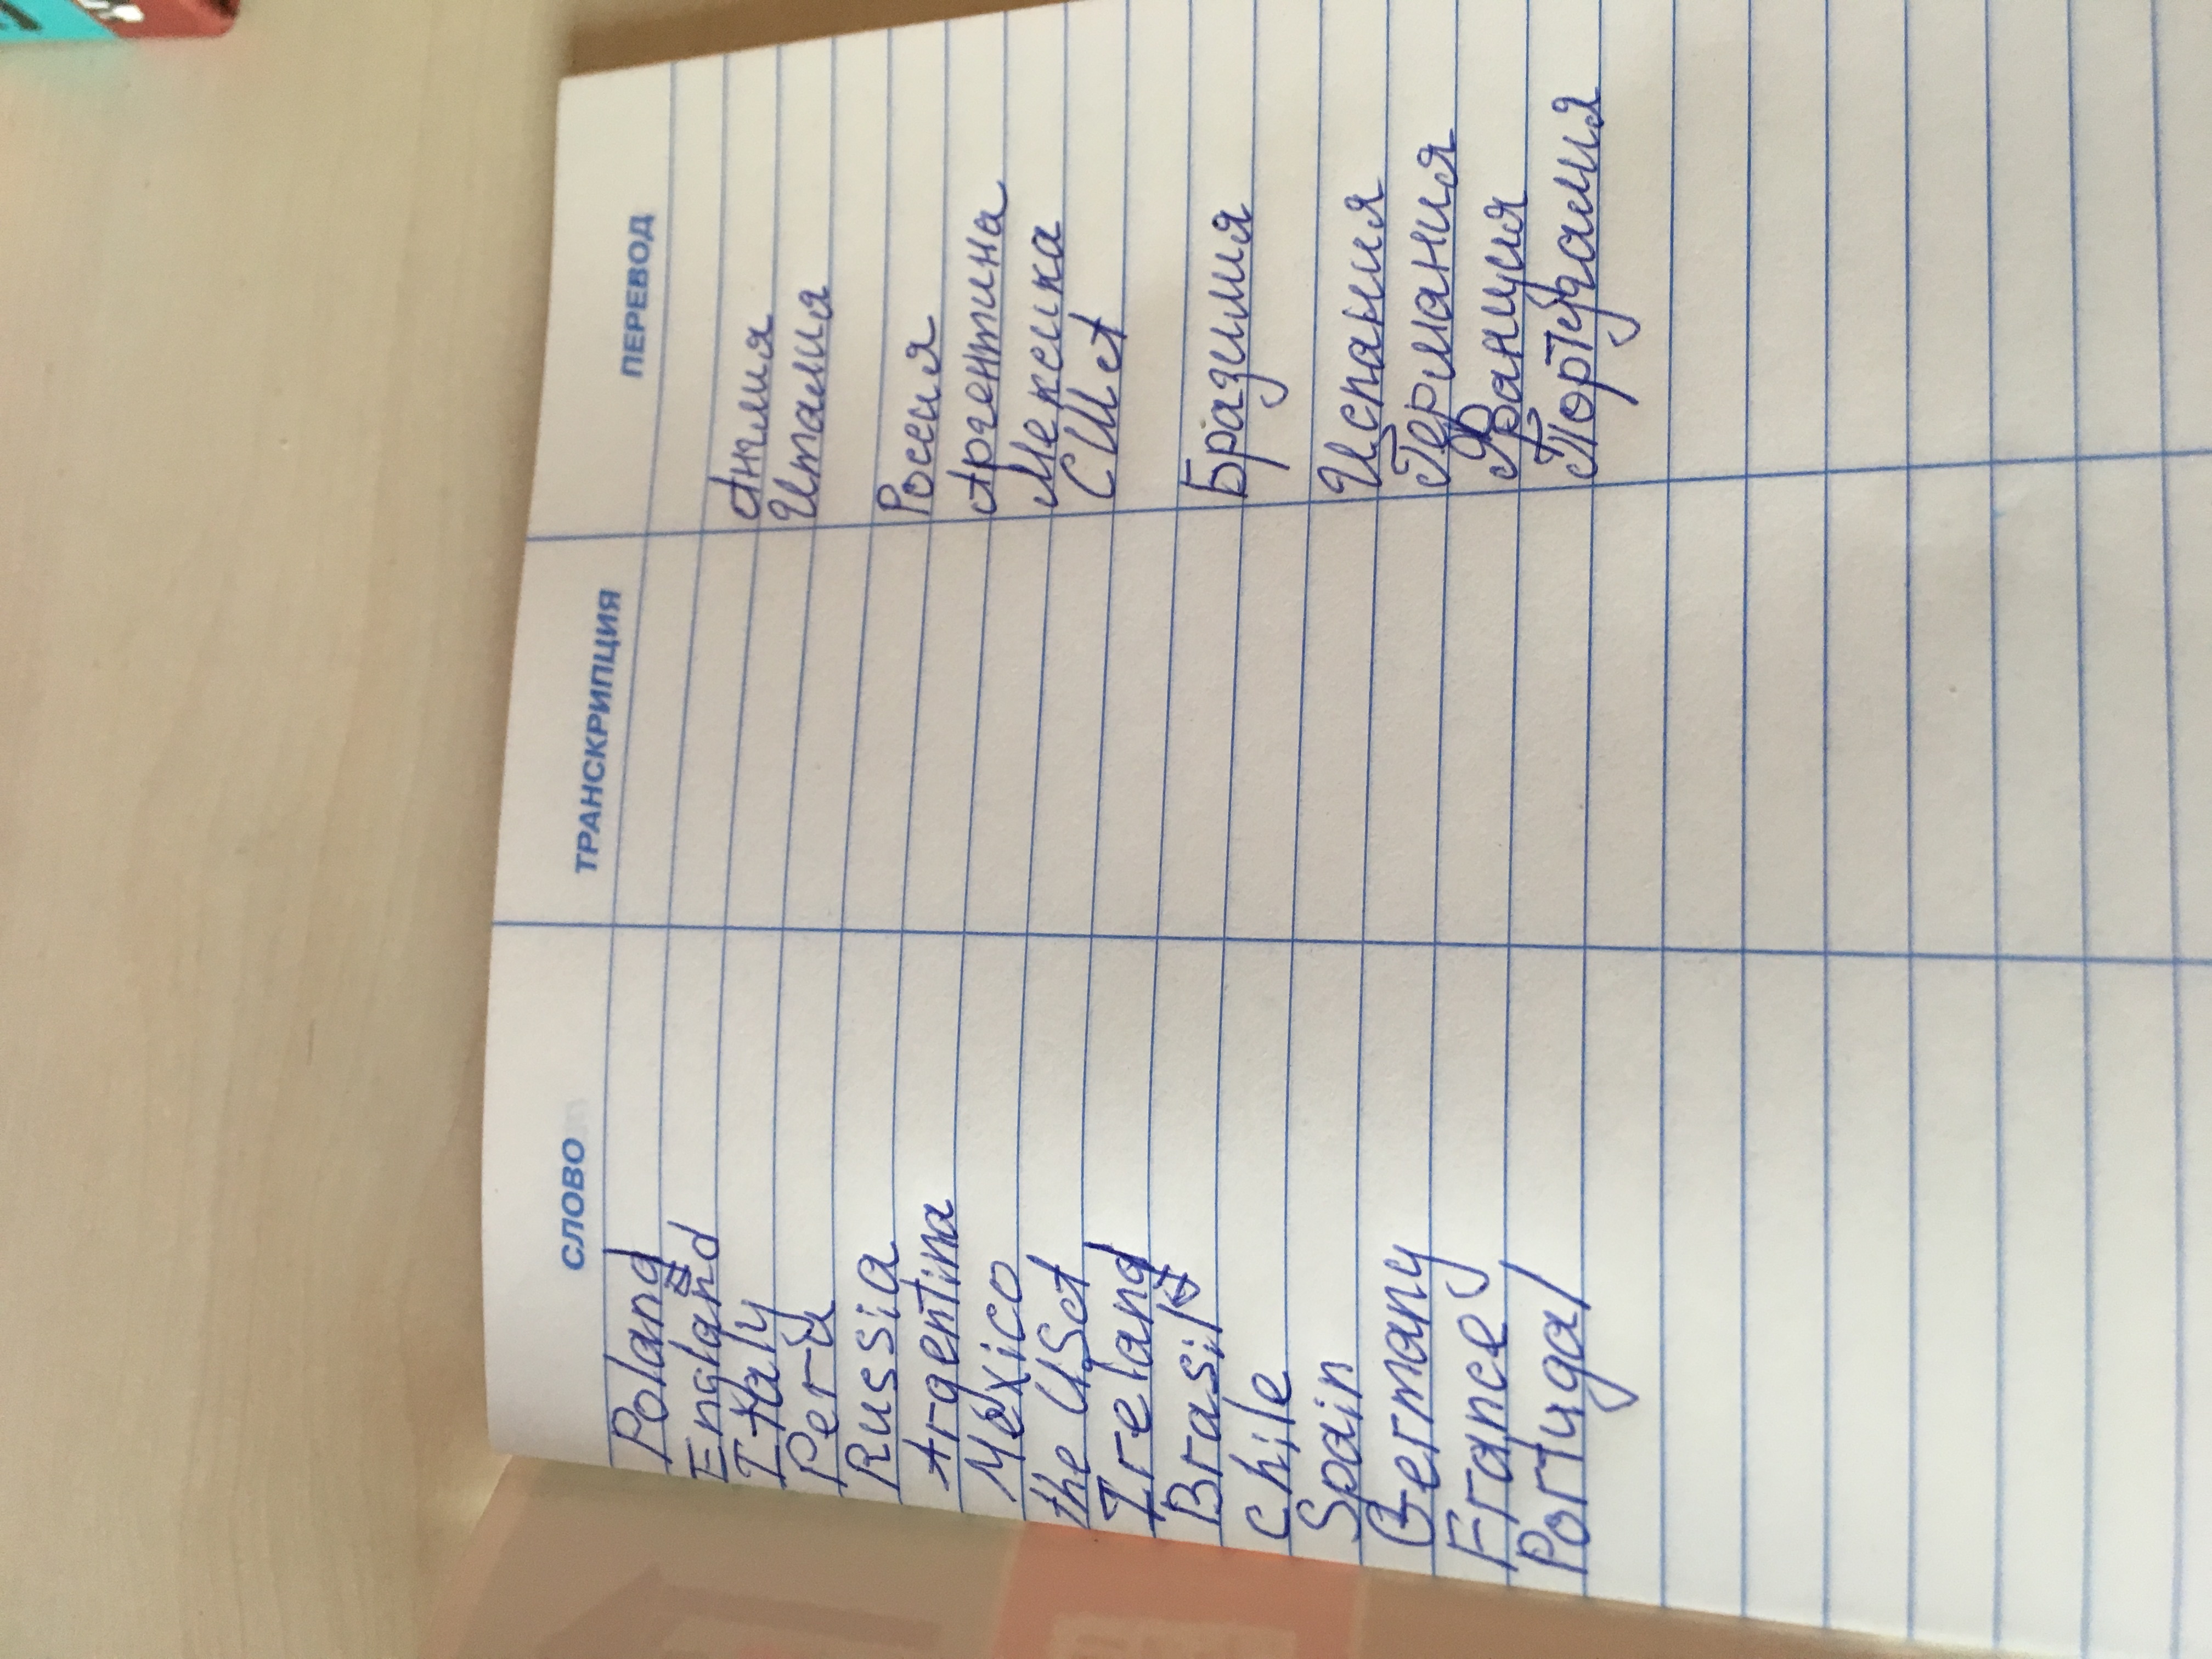 СЛОВО ТРАНСКРИПЦИЯ ПЕРЕВОД
Poland
England Англия
Italy Италия
Peru
Russia Россия
Argentina Аргентина
Mexico Мексика
the USA США
Ireland
Brasil Бразилия
Chile
Spain Испания
Germany Германия
France Франция
Portugal Португалия